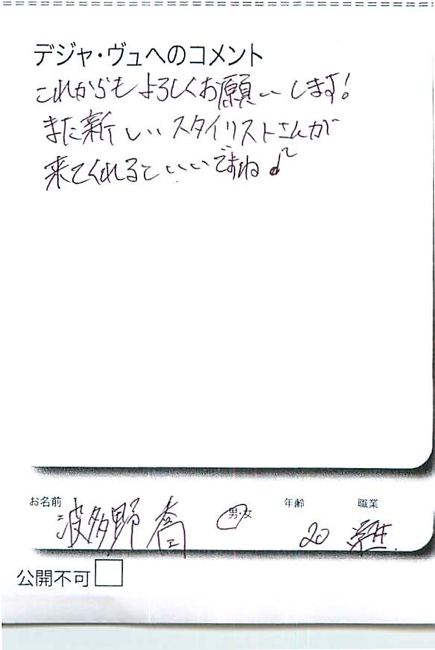 デジャ・ヴュへのコメント
これからもよろしくお願いします!
また新しいスタイリストさんが
来てくれるといいですね♪
お名前 男・女 年齢 職業
波多野 喬 20 学生.
公開不可